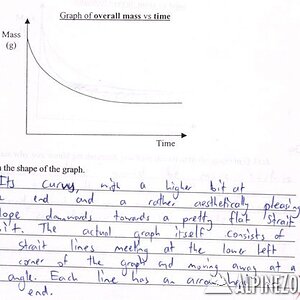 Graph of overall mass vs time
Mass
(g)
Time
n the shape of the graph.
Its curvy, with a higher bit at
end and a rather aesthetically pleasing
lope downwards towards a pretty flat strait
bit. The actual graph itself consists of
strait lines meeting at the lower left
corner of the graph and moving away at a
angle. Each line has an arrow
end.
ALPINEZO